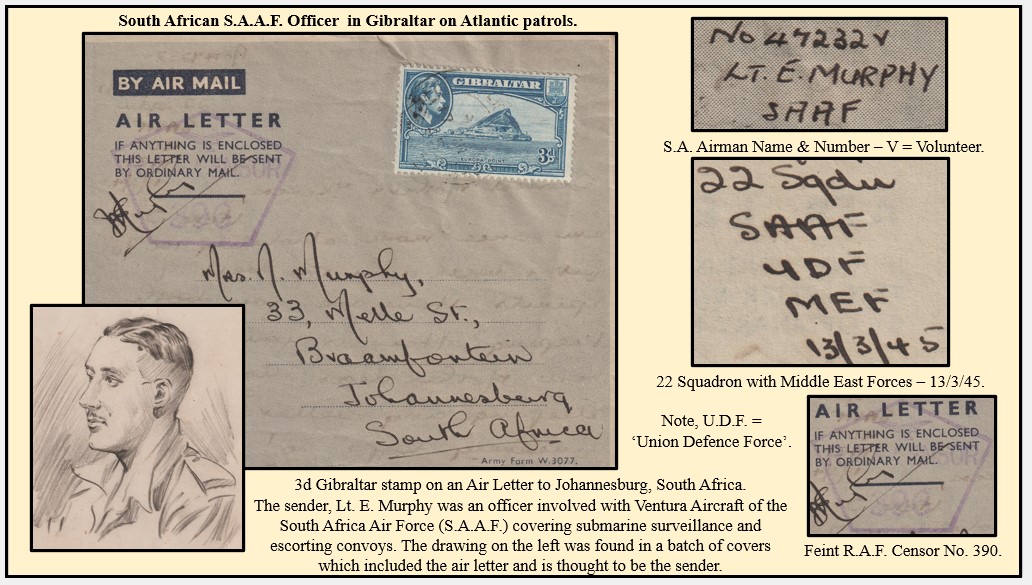 South African S.A.A.F. Officer in Gibraltar on Atlantic patrols.
BY AIR MAIL
AIR LETTER
IF ANYTHING IS ENCLOSED
THIS LETTER WILL BE SENT
BY ORDINARY MAIL.
GIBRALTAR
EUROPA POINT
3d
Mrs. N. Murphy,
33, Melle St.,
Braamfontein
Johannesburg
South Africa
Army Form W.3077.
No 47232V
LT. E. MURPHY
SAAF
S.A. Airman Name & Number – V = Volunteer.
22 Sqdn
SAAF
UDF
MEF
13/3/45
22 Squadron with Middle East Forces – 13/3/45.
Note, U.D.F. =
‘Union Defence Force’.
AIR LETTER
IF ANYTHING IS ENCLOSED
THIS LETTER WILL BE SENT
BY ORDINARY MAIL.
Feint R.A.F. Censor No. 390.
3d Gibraltar stamp on an Air Letter to Johannesburg, South Africa.
The sender, Lt. E. Murphy was an officer involved with Ventura Aircraft of the
South Africa Air Force (S.A.A.F.) covering submarine surveillance and
escorting convoys. The drawing on the left was found in a batch of covers
which included the air letter and is thought to be the sender.